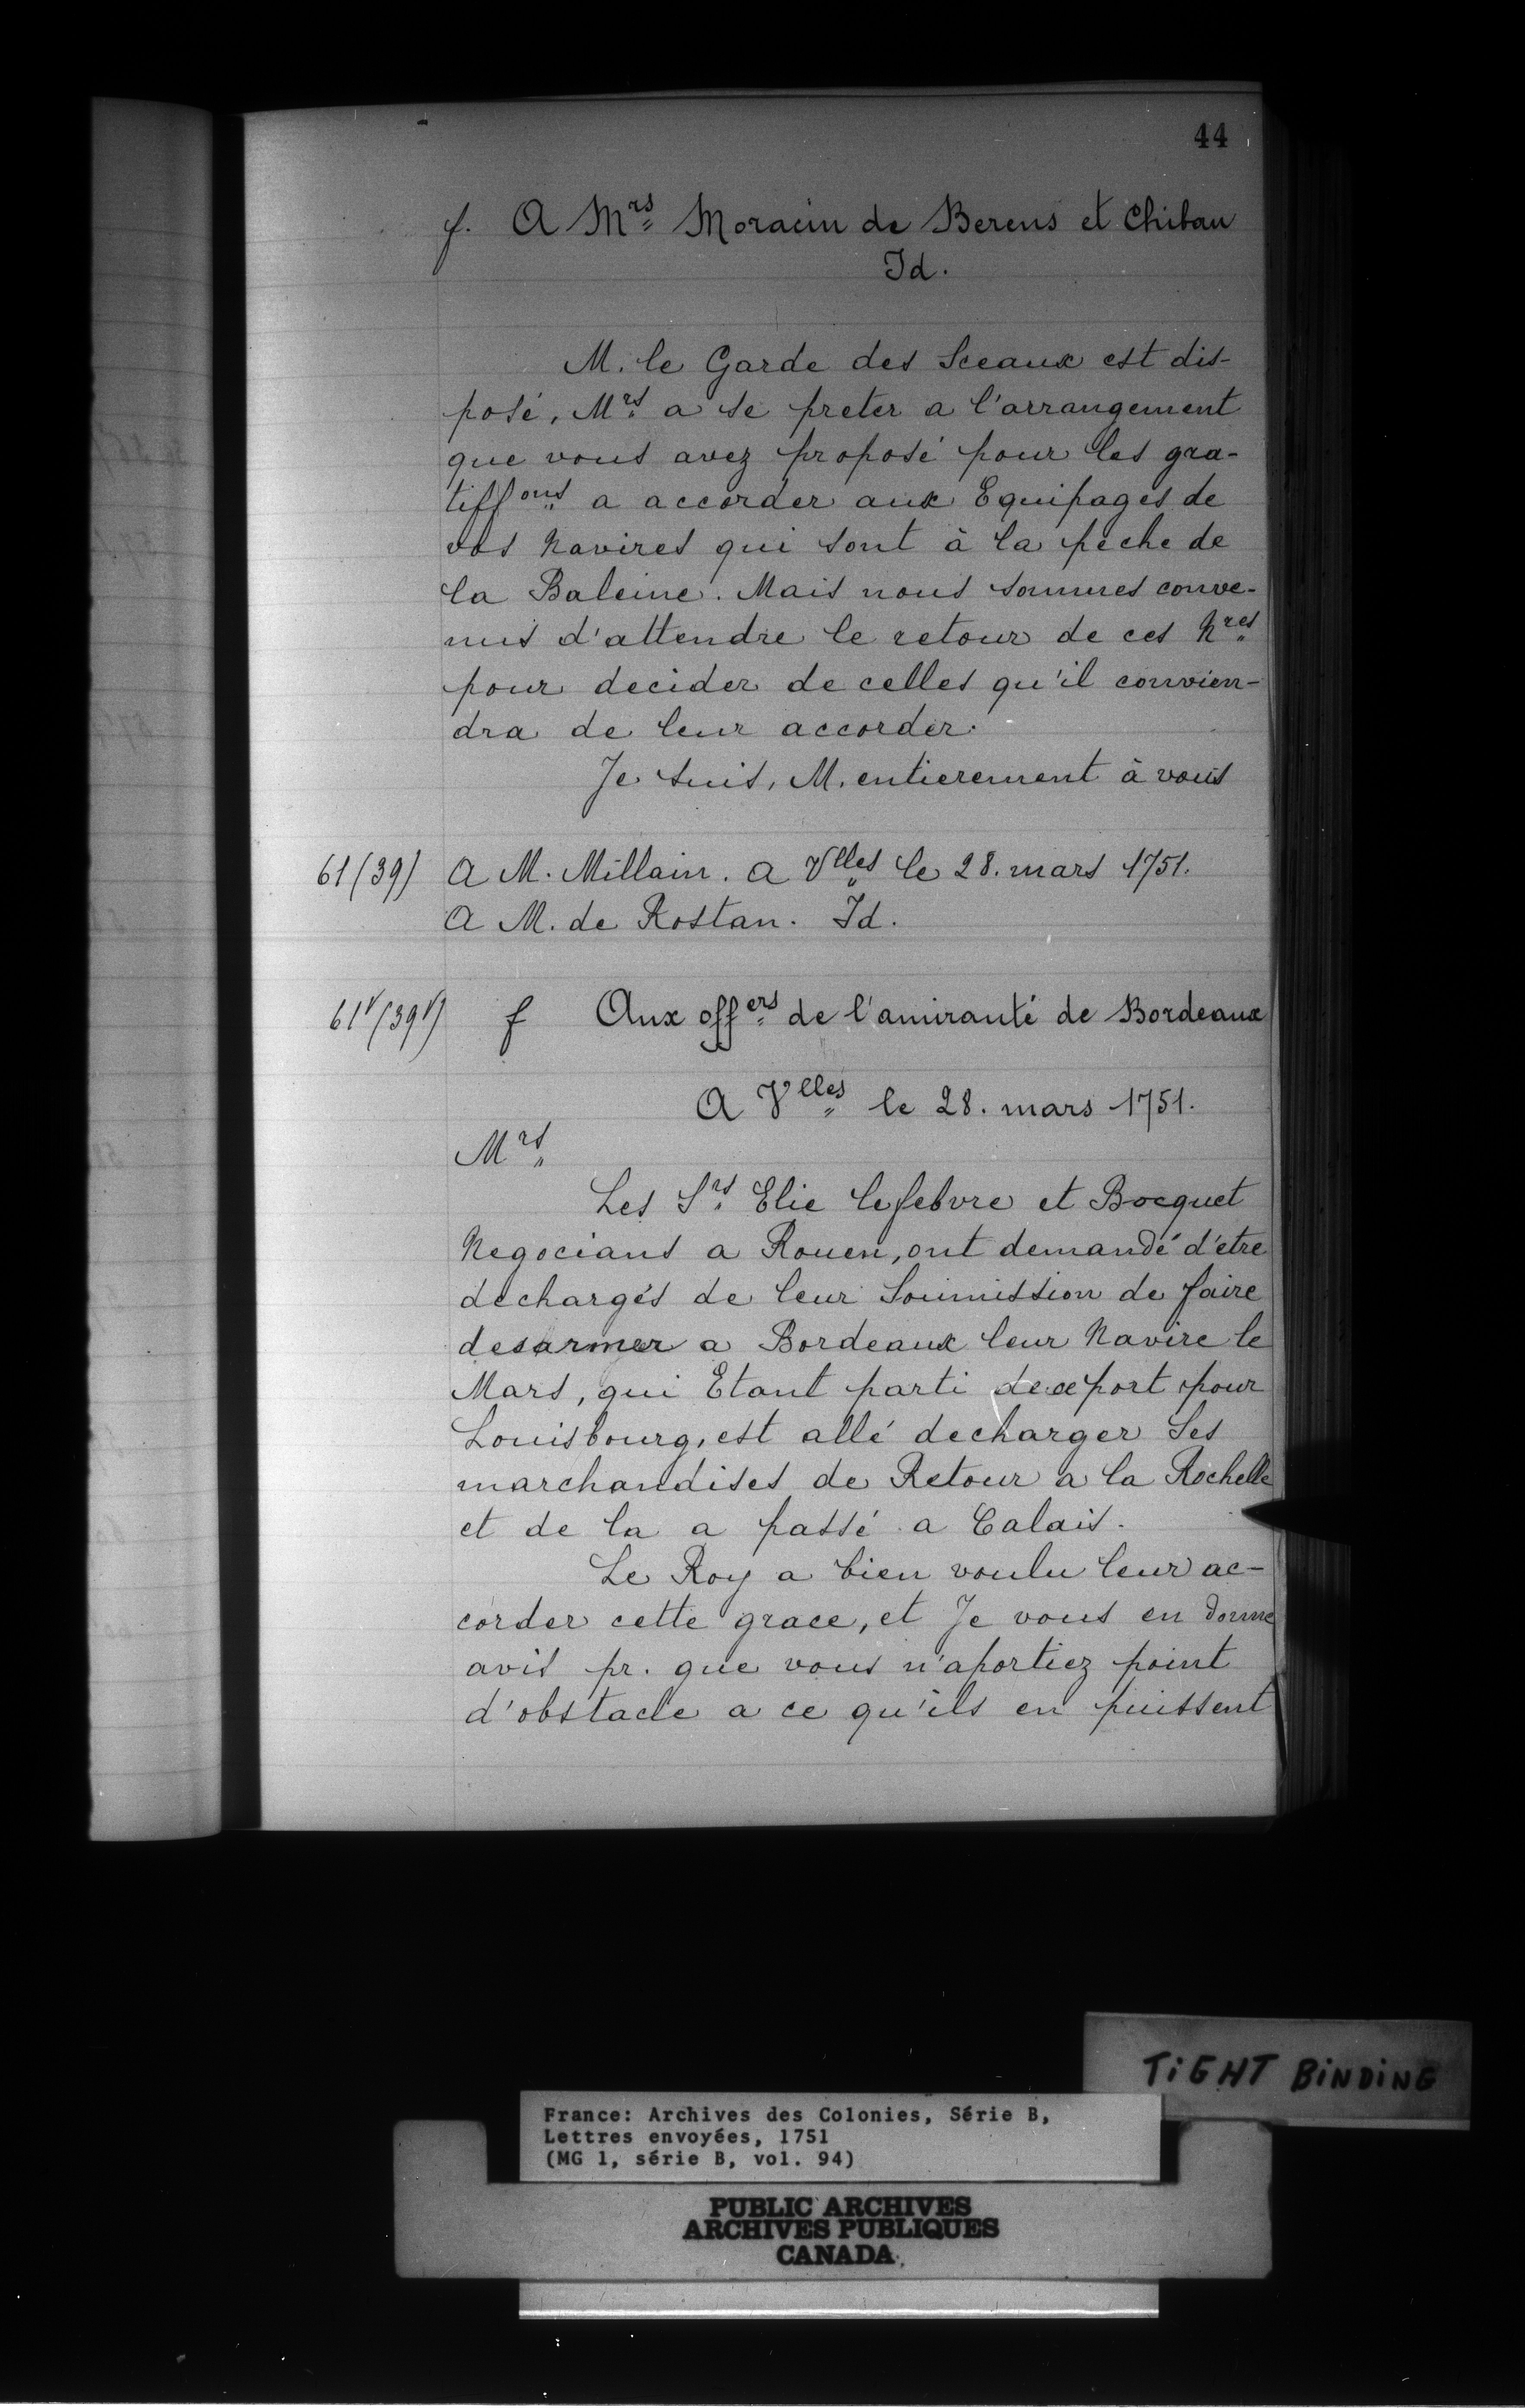 44
f. A Mrs Moracin de Berens et Chibau
Id.
M. le Garde des Sceaux est dis-
posé, Mrs a se preter a l'arrangement
que vous avez proposé pour les gra-
tiffons a accorder aux Equipages de
vos Navires qui sont à la peche de
la Baleine. Mais nous sommes conve-
nus d'attendre le retour de ces Nres
pour decider de celles qu'il convien-
dra de leur accorder.
Je suis, M. entierement à vous
61 (39) A M. Millain. A Vlles le 28. mars 1751.
A M. de Rostan. Id.
61v (39v) f Aux offers de l'amirauté de Bordeaux
A Vlles le 28. mars 1751.
Mrs
Les Srs Elie lefebvre et Bocquet
Negocians a Rouen, ont demandé d'etre
dechargés de leur Soumission de faire
desarmer a Bordeaux leur Navire le
Mars, qui Etant parti de ce port pour
Louisbourg, est allé decharger Ses
marchandises de Retour a la Rochelle
et de la a passé a Calais.
Le Roy a bien voulu leur ac-
corder cette grace, et Je vous en donne
avis pr. que vous n'aportiez point
d'obstacle a ce qu'ils en puissent
TIGHT BINDING
France: Archives des Colonies, Série B,
Lettres envoyées, 1751
(MG 1, série B, vol. 94)
PUBLIC ARCHIVES
ARCHIVES PUBLIQUES
CANADA